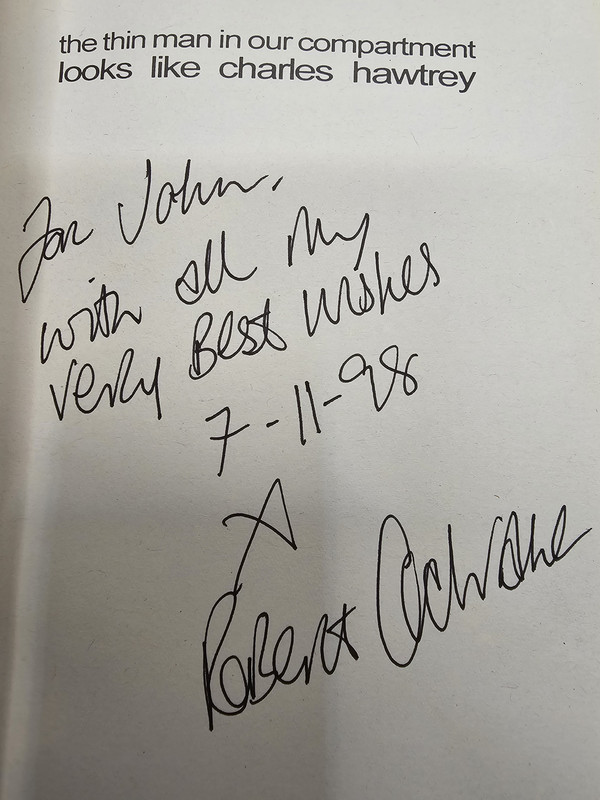 the thin man in our compartment
looks like charles hawtrey
For John,
with all my
very Best wishes
7-11-98
X
Robert Cochrane